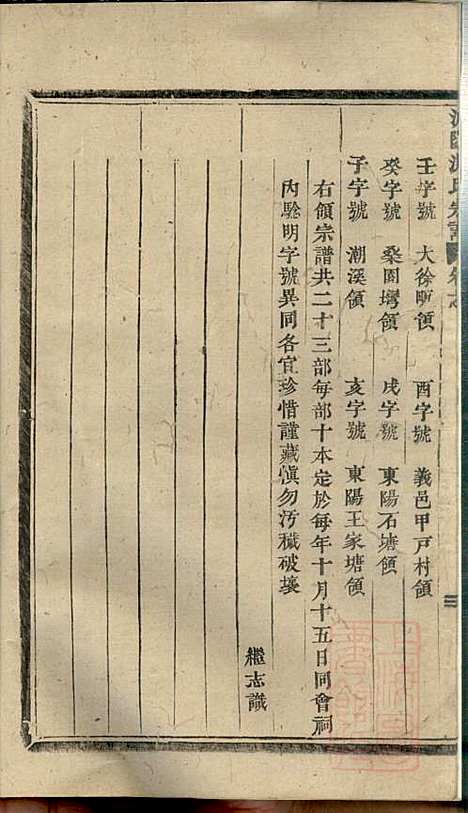 壬字號　大徐畈領　酉字號　義邑甲戸村領
癸字號　桑園塆領　戌字號　東陽石塘領
子字號　潮溪領　亥字號　東陽王家塘領
右領宗譜共二十三部每部十本定於每年十月十五日同會祠
內驗明字號異同各宜珍惜謹藏愼勿汚穢破壞
繼志識